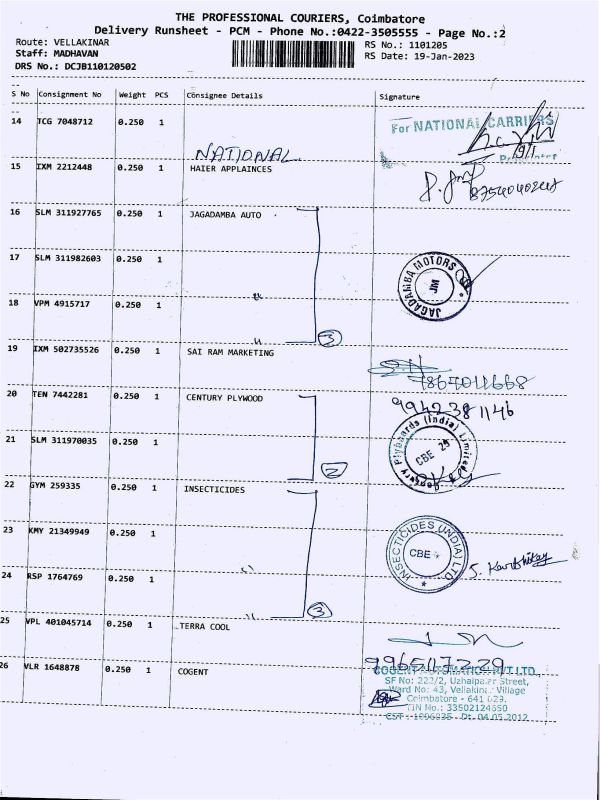 THE PROFESSIONAL COURIERS, Coimbatore
Delivery Runsheet - PCM - Phone No.:0422-3505555 - Page No.:2
Route: VELLAKINAR
RS No.: 1101205
Staff: MADHAVAN
RS Date: 19-Jan-2023
DRS No.: DCJB110120502
S No Consignment No Weight PCS Consignee Details Signature
14 TCG 7048712 0.250 1
For NATIONAL CARRIERS
NATIONAL
15 IXM 2212448 0.250 1 HAIER APPLAINCES
16 SLM 311927765 0.250 1 JAGADAMBA AUTO
17 SLM 311982603 0.250 1
JAGADAMBA MOTORS
JM
18 VPM 4915717 0.250 1 "
" 3
19 IXM 502735526 0.250 1 SAI RAM MARKETING
20 TEN 7442281 0.250 1 CENTURY PLYWOOD
9942381146
21 SLM 311970035 0.250 1
Plyboards (India) Limited
CBE
2
22 GYM 259335 0.250 1 INSECTICIDES
23 KMY 21349949 0.250 1
INSECTICIDES (INDIA) LTD
CBE
24 RSP 1764769 0.250 1 "
S. Karthikey
" 3
25 VPL 401045714 0.250 1 TERRA COOL
26 VLR 1648878 0.250 1 COGENT
SF No: 222/2, Uzhaipalar Street,
Ward No: 43, Vellakinar Village
Coimbatore - 641 029.
TIN No.: 33502124650
Dt. 04.05.2012